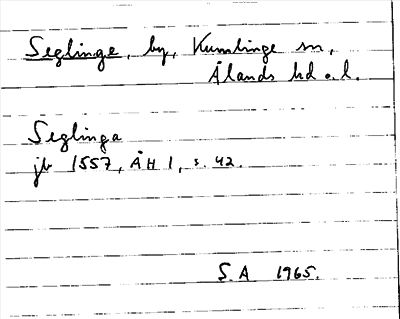 Seglinge, by, Kumlinge sn,
Ålands hd o. l.
Seglinga
jb 1557, ÅH 1, s. 42.
S.A 1965.